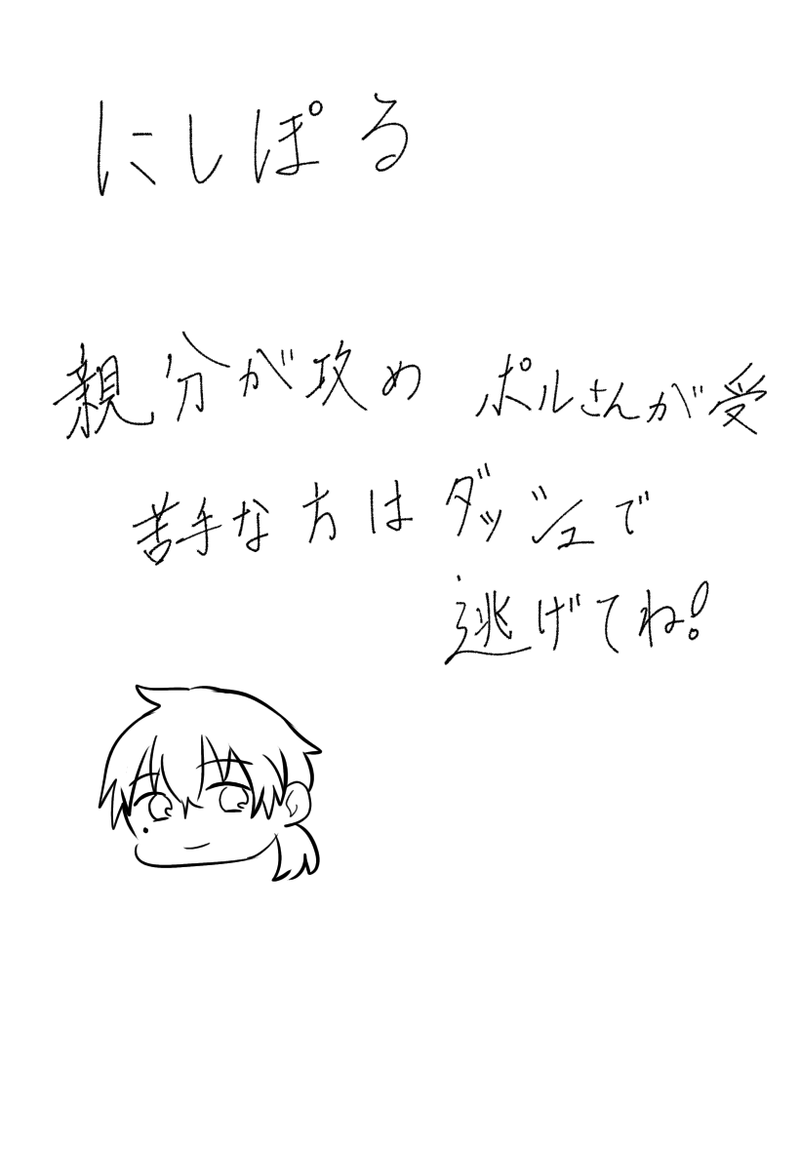 にしぽる
親分が攻め ポルさんが受
苦手な方はダッシュで
逃げてね!